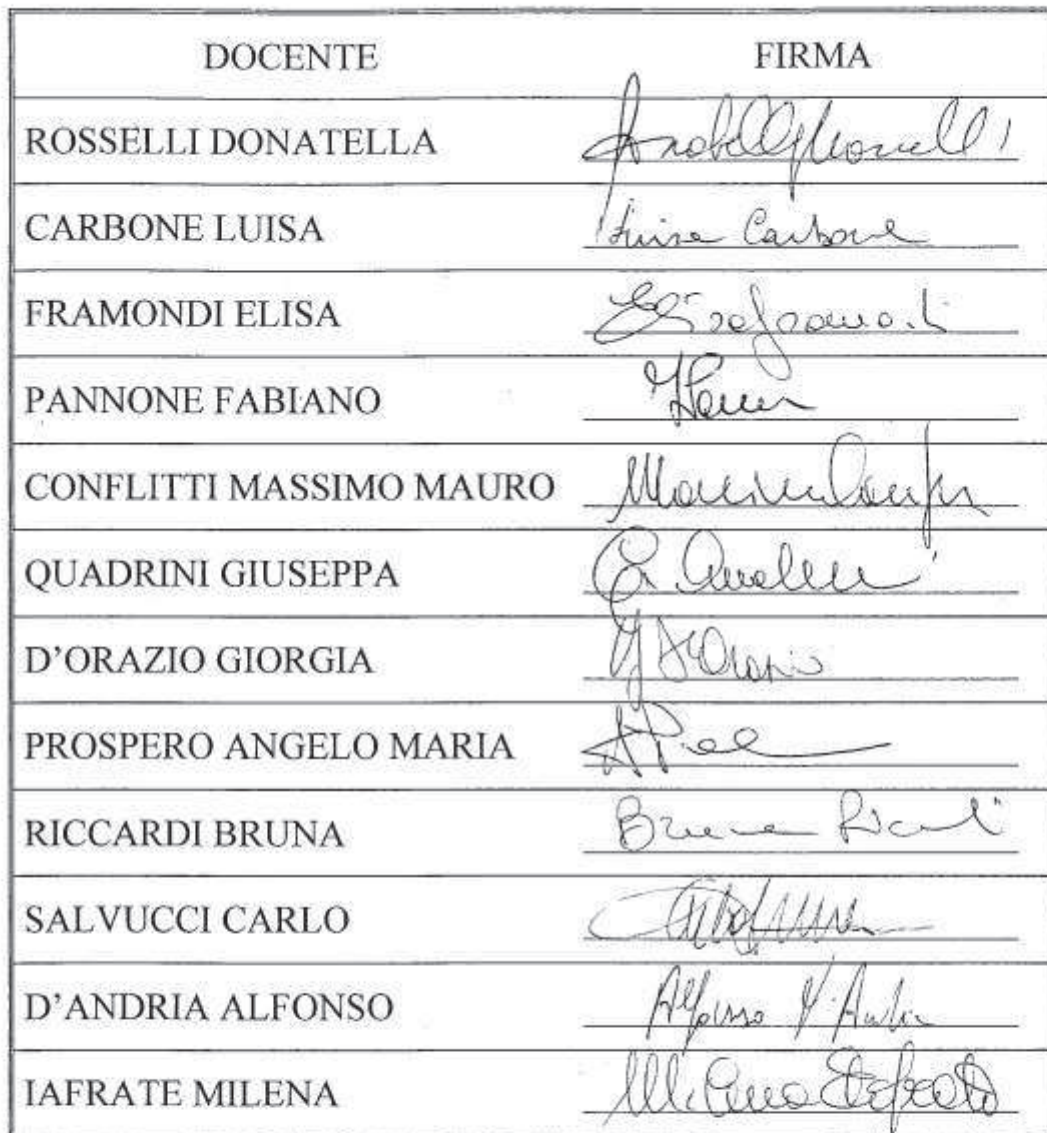 DOCENTE FIRMA
ROSSELLI DONATELLA
CARBONE LUISA Luisa Carbone
FRAMONDI ELISA
PANNONE FABIANO
CONFLITTI MASSIMO MAURO
QUADRINI GIUSEPPA
D'ORAZIO GIORGIA G D'Orazio
PROSPERO ANGELO MARIA
RICCARDI BRUNA Bruna Riccardi
SALVUCCI CARLO
D'ANDRIA ALFONSO Alfonso D'Andria
IAFRATE MILENA Milena Iafrate